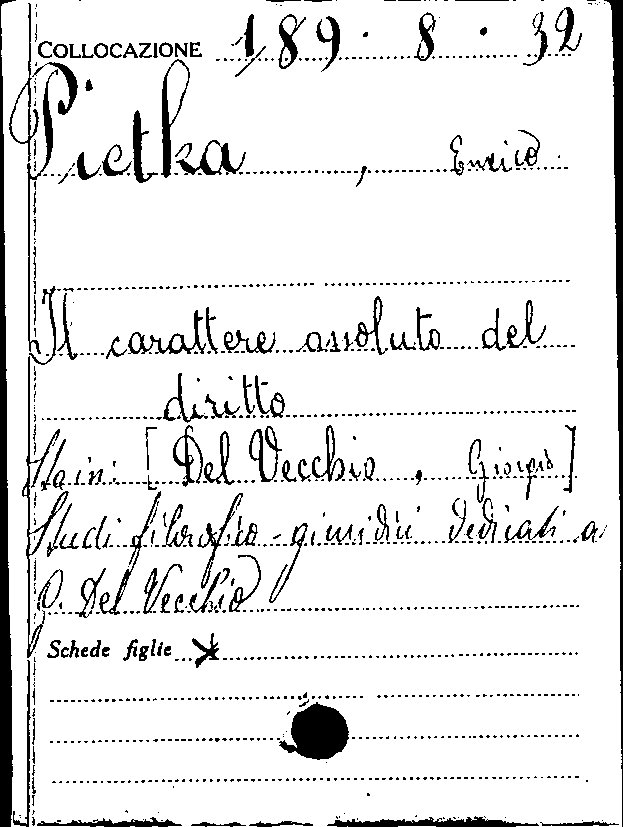 COLLOCAZIONE 189. 8. 32
Pietka, Enrico
Il carattere assoluto del
diritto
Sta in: [Del Vecchio, Giorgio]
Studi filosofico-giuridici dedicati a
G. Del Vecchio
Schede figlie